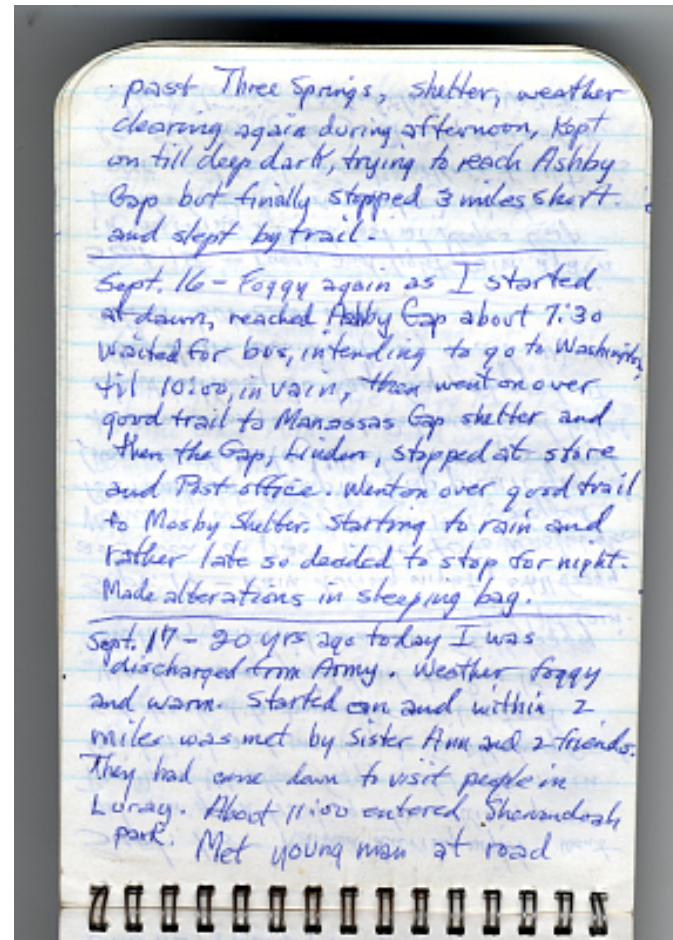 past Three Springs, shelter, weather
clearing again during afternoon, Kept
on till deep dark, trying to reach Ashby
Gap but finally stopped 3 miles short.
and slept by trail.
Sept. 16 - Foggy again as I started
at dawn, reached Ashby Gap about 7:30
Waited for bus, intending to go to Washington,
til 10:00, in vain, then went on over
good trail to Manassas Gap shelter and
then the Gap, Linden, stopped at store
and Post office. Went on over good trail
to Mosby Shelter. Starting to rain and
rather late so decided to stop for night.
Made alterations in sleeping bag.
Sept. 17 - 20 yrs ago today I was
discharged from Army. Weather foggy
and warm. Started on and within 2
miles was met by Sister Ann and 2 friends.
They had come down to visit people in
Luray. About 11:00 entered Shenandoah
park. Met young man at road